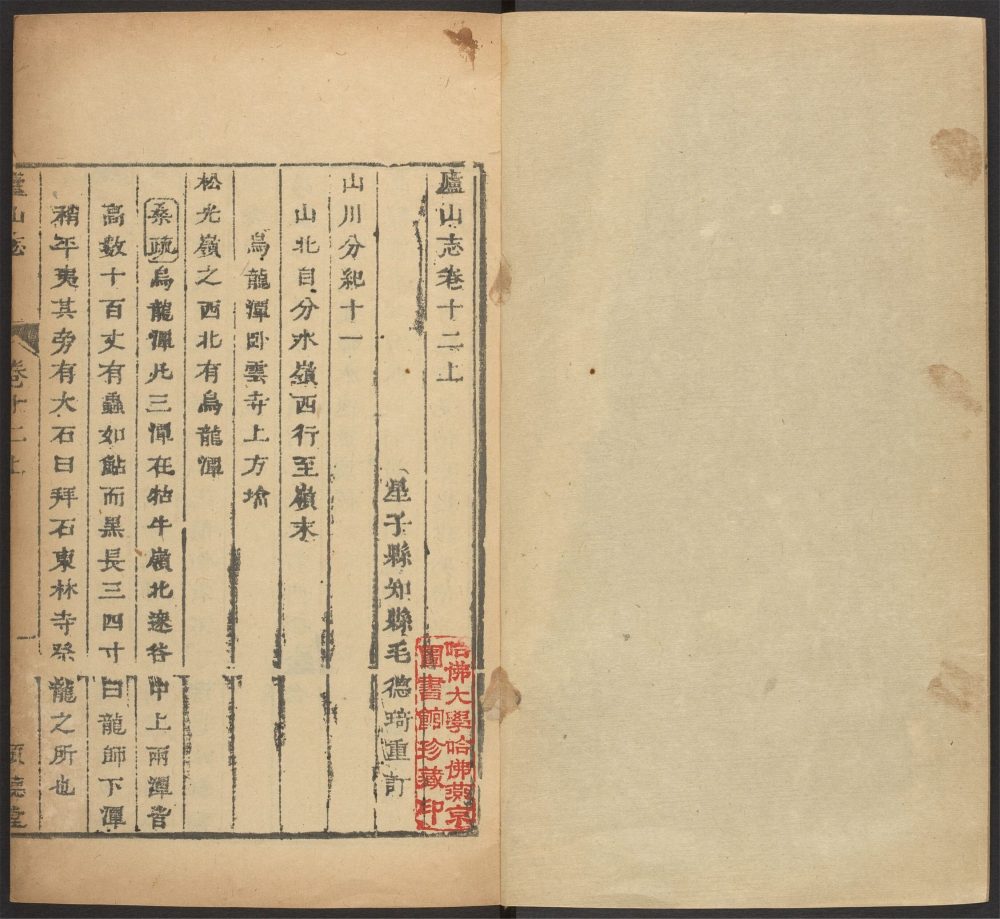 廬山志卷十二上
星子縣知縣毛德琦重訂
山川分紀十一
山北自分水嶺西行至嶺末
烏龍潭臥雲寺上方塔
松光嶺之西北有烏龍潭
桑疏烏龍潭凡三潭在牯牛嶺北邃谷中上兩潭皆
高數十百丈有蟲如鮎而黑長三四寸曰龍師下潭
稍平夷其旁有大石曰拜石東林寺祭龍之所也
廬山志
卷十二上
一
順德堂
哈佛大學哈佛燕京
圖書館珍藏印